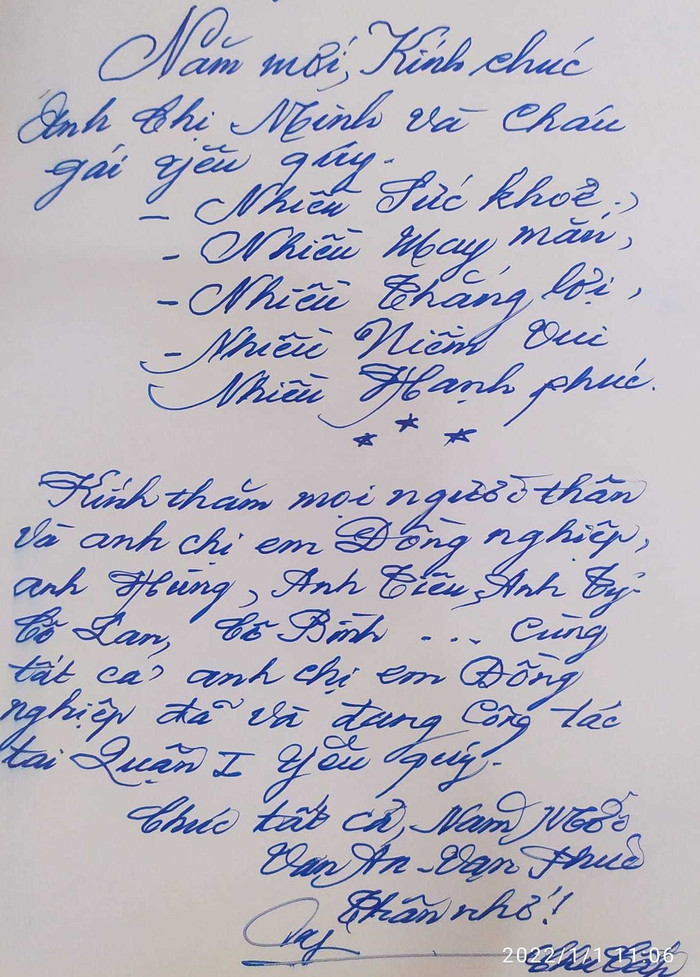 Năm mới, Kính chúc
Anh Chị Minh và Cháu
gái yêu quý.
- Nhiều Sức khoẻ,
- Nhiều May mắn,
- Nhiều Thắng lợi,
- Nhiều Niềm Vui
Nhiều Hạnh phúc.
* * *
Kính thăm mọi người thân
và anh chị em Đồng nghiệp,
anh Hùng, Anh Tiêu, Anh Tý
Cô Lan, Cô Bình .... Cùng
tất cả anh chị em Đồng
nghiệp đã và đang Công tác
tại Quận I yêu quý.
Chúc tất cả, Năm Mới
Vạn An - Vạn Phúc
Thân nhớ!
2022/1/1 11:06